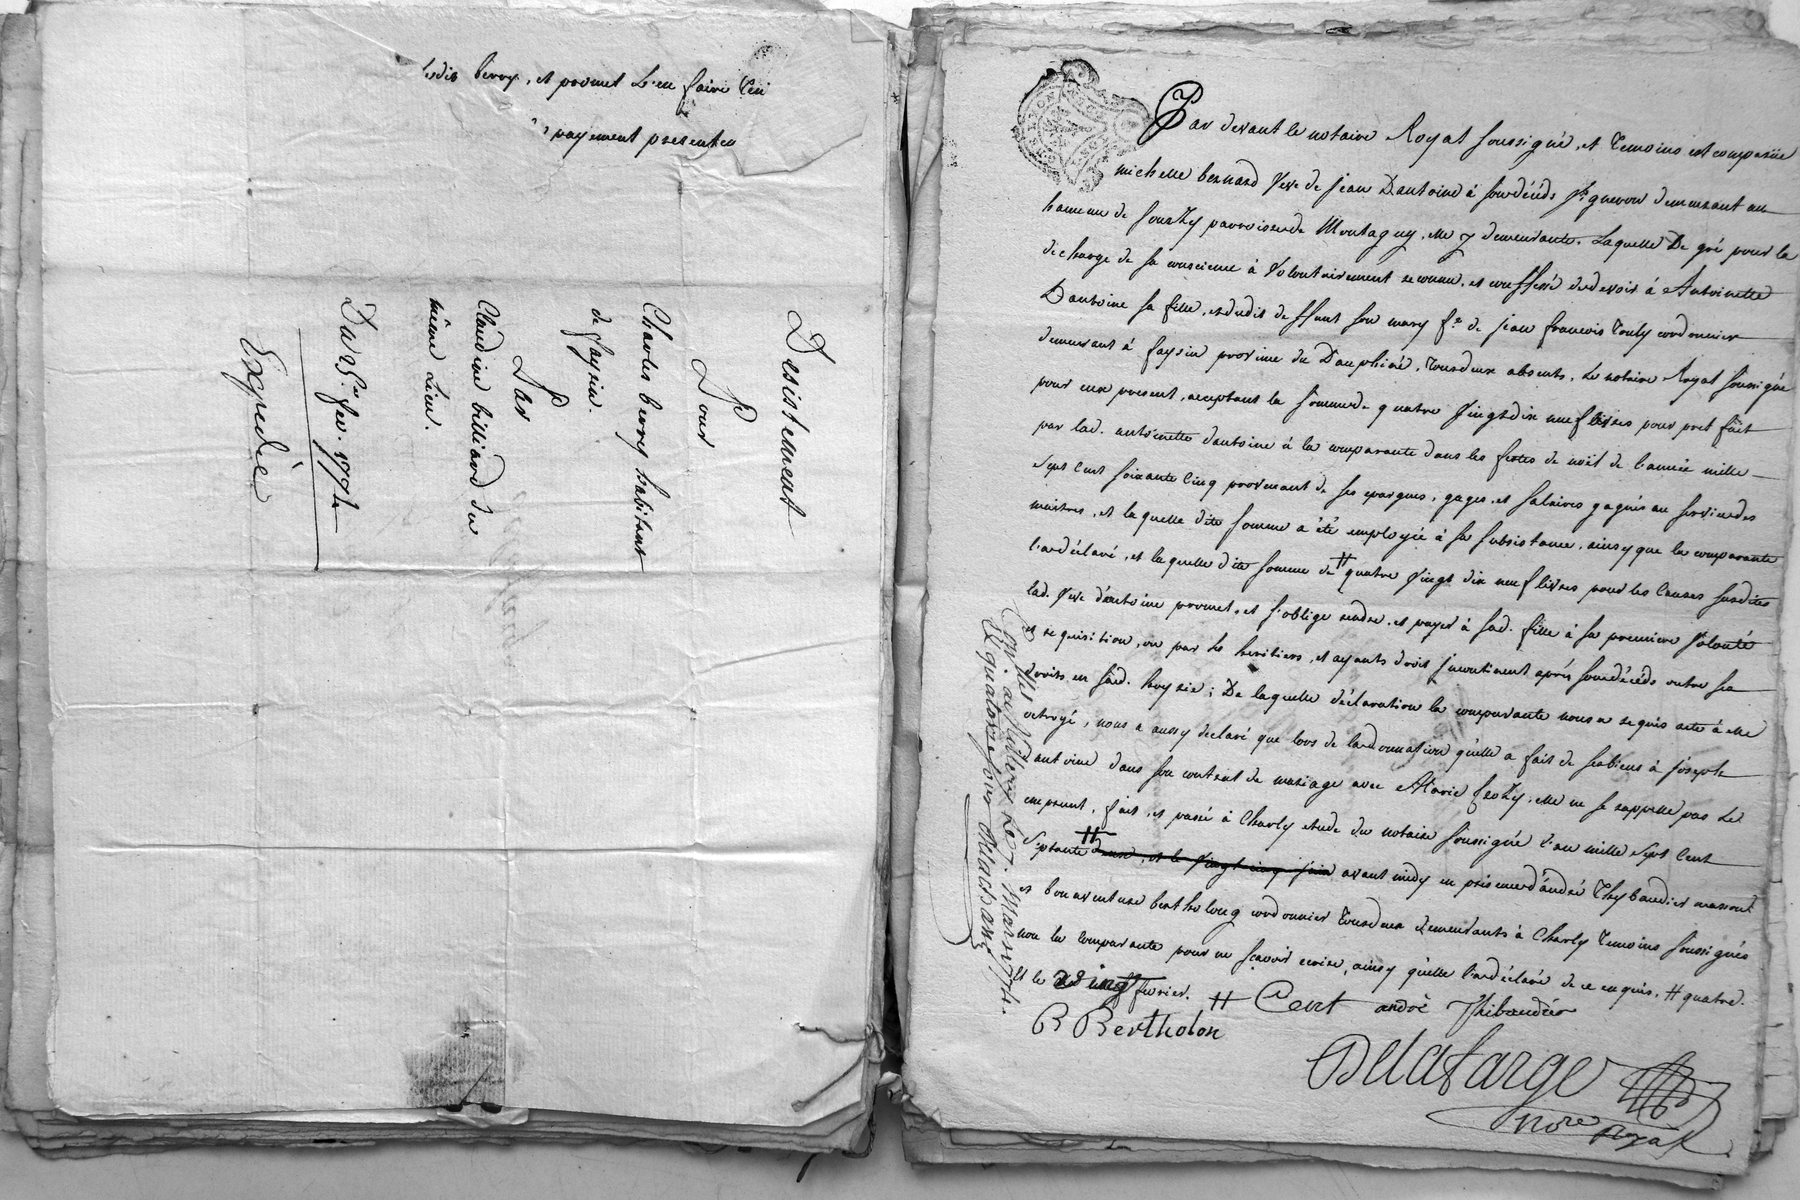 ledit berry, et promet L'en faire
payement presenten
Desistement
Pour
Charles berry habitant
de fayzin
Par
Claudine billiard du
même Lieu.
Du 28e. fev. 1774
Expediée
Par devant le notaire Royal soussigné, et temoins est comparüe
michelle bernard Veve de jean Dantoine à son décéds vigneron demeurant au
hameau de Sourzy parroisse de Montagny, elle y demeurante. Laquelle De gré pour la
décharge de sa conscience à Volontairement reconnu, et confessé de devoir à Antoinette
Dantoine sa fille, et dudit deffunt son mary fe. de jean francois Couly cordonnier
demeurant à faysin province du Dauphiné, tous deux absents, Le notaire Royal soussigné
pour eux present, acceptant la somme de quatre vingt dix neuf livres pour pret fait
par lad. antoinette dantoine à la comparante dans les festes de noël de l'année mille
sept cent soixante cinq provenant de ses epargnes, gages, et salaires gagnés au service des
maitres, et laquelle dite somme a été employée à sa subsistance, ainsy que la comparante
l'a déclaré, et laquelle dite somme de quatre vingt dix neuf livres pour les Causes susdites
Lad. Veve dantoine promet, et s'oblige rendre, et payer à sad. fille à sa premiere volonté
et requisition, ou par ses heritiers, et ayants droit incontinent après son décéds outre ses
droits en sad. hoyrie; De laquelle déclaration la comparante nous a requis acte à elle
octroyé, nous a aussy declaré que lors de la donnation qu'elle a fait de ses biens à joseph
dantoine dans son contrat de mariage avec Marie ferzy, elle ne se rappelle pas Le
emprunt, fait, et passé à Charly etude du notaire soussigné L'an mille sept cent
septante # avant midy en presence d'andré Thybaudier masson
et bonaventure bertholong cordonnier tous deux demeurants à Charly temoins soussignés
non la comparante pour ne sçavoir ecrire, ainsy qu'elle l'a déclaré de ce enquis, # quatre
et le vingt fevrier. #
andré Thibaudier
B Bertholon
Delafarge
nore Royal
Conllé à Millery Le 7. Mars 1774.
R quatorze sous